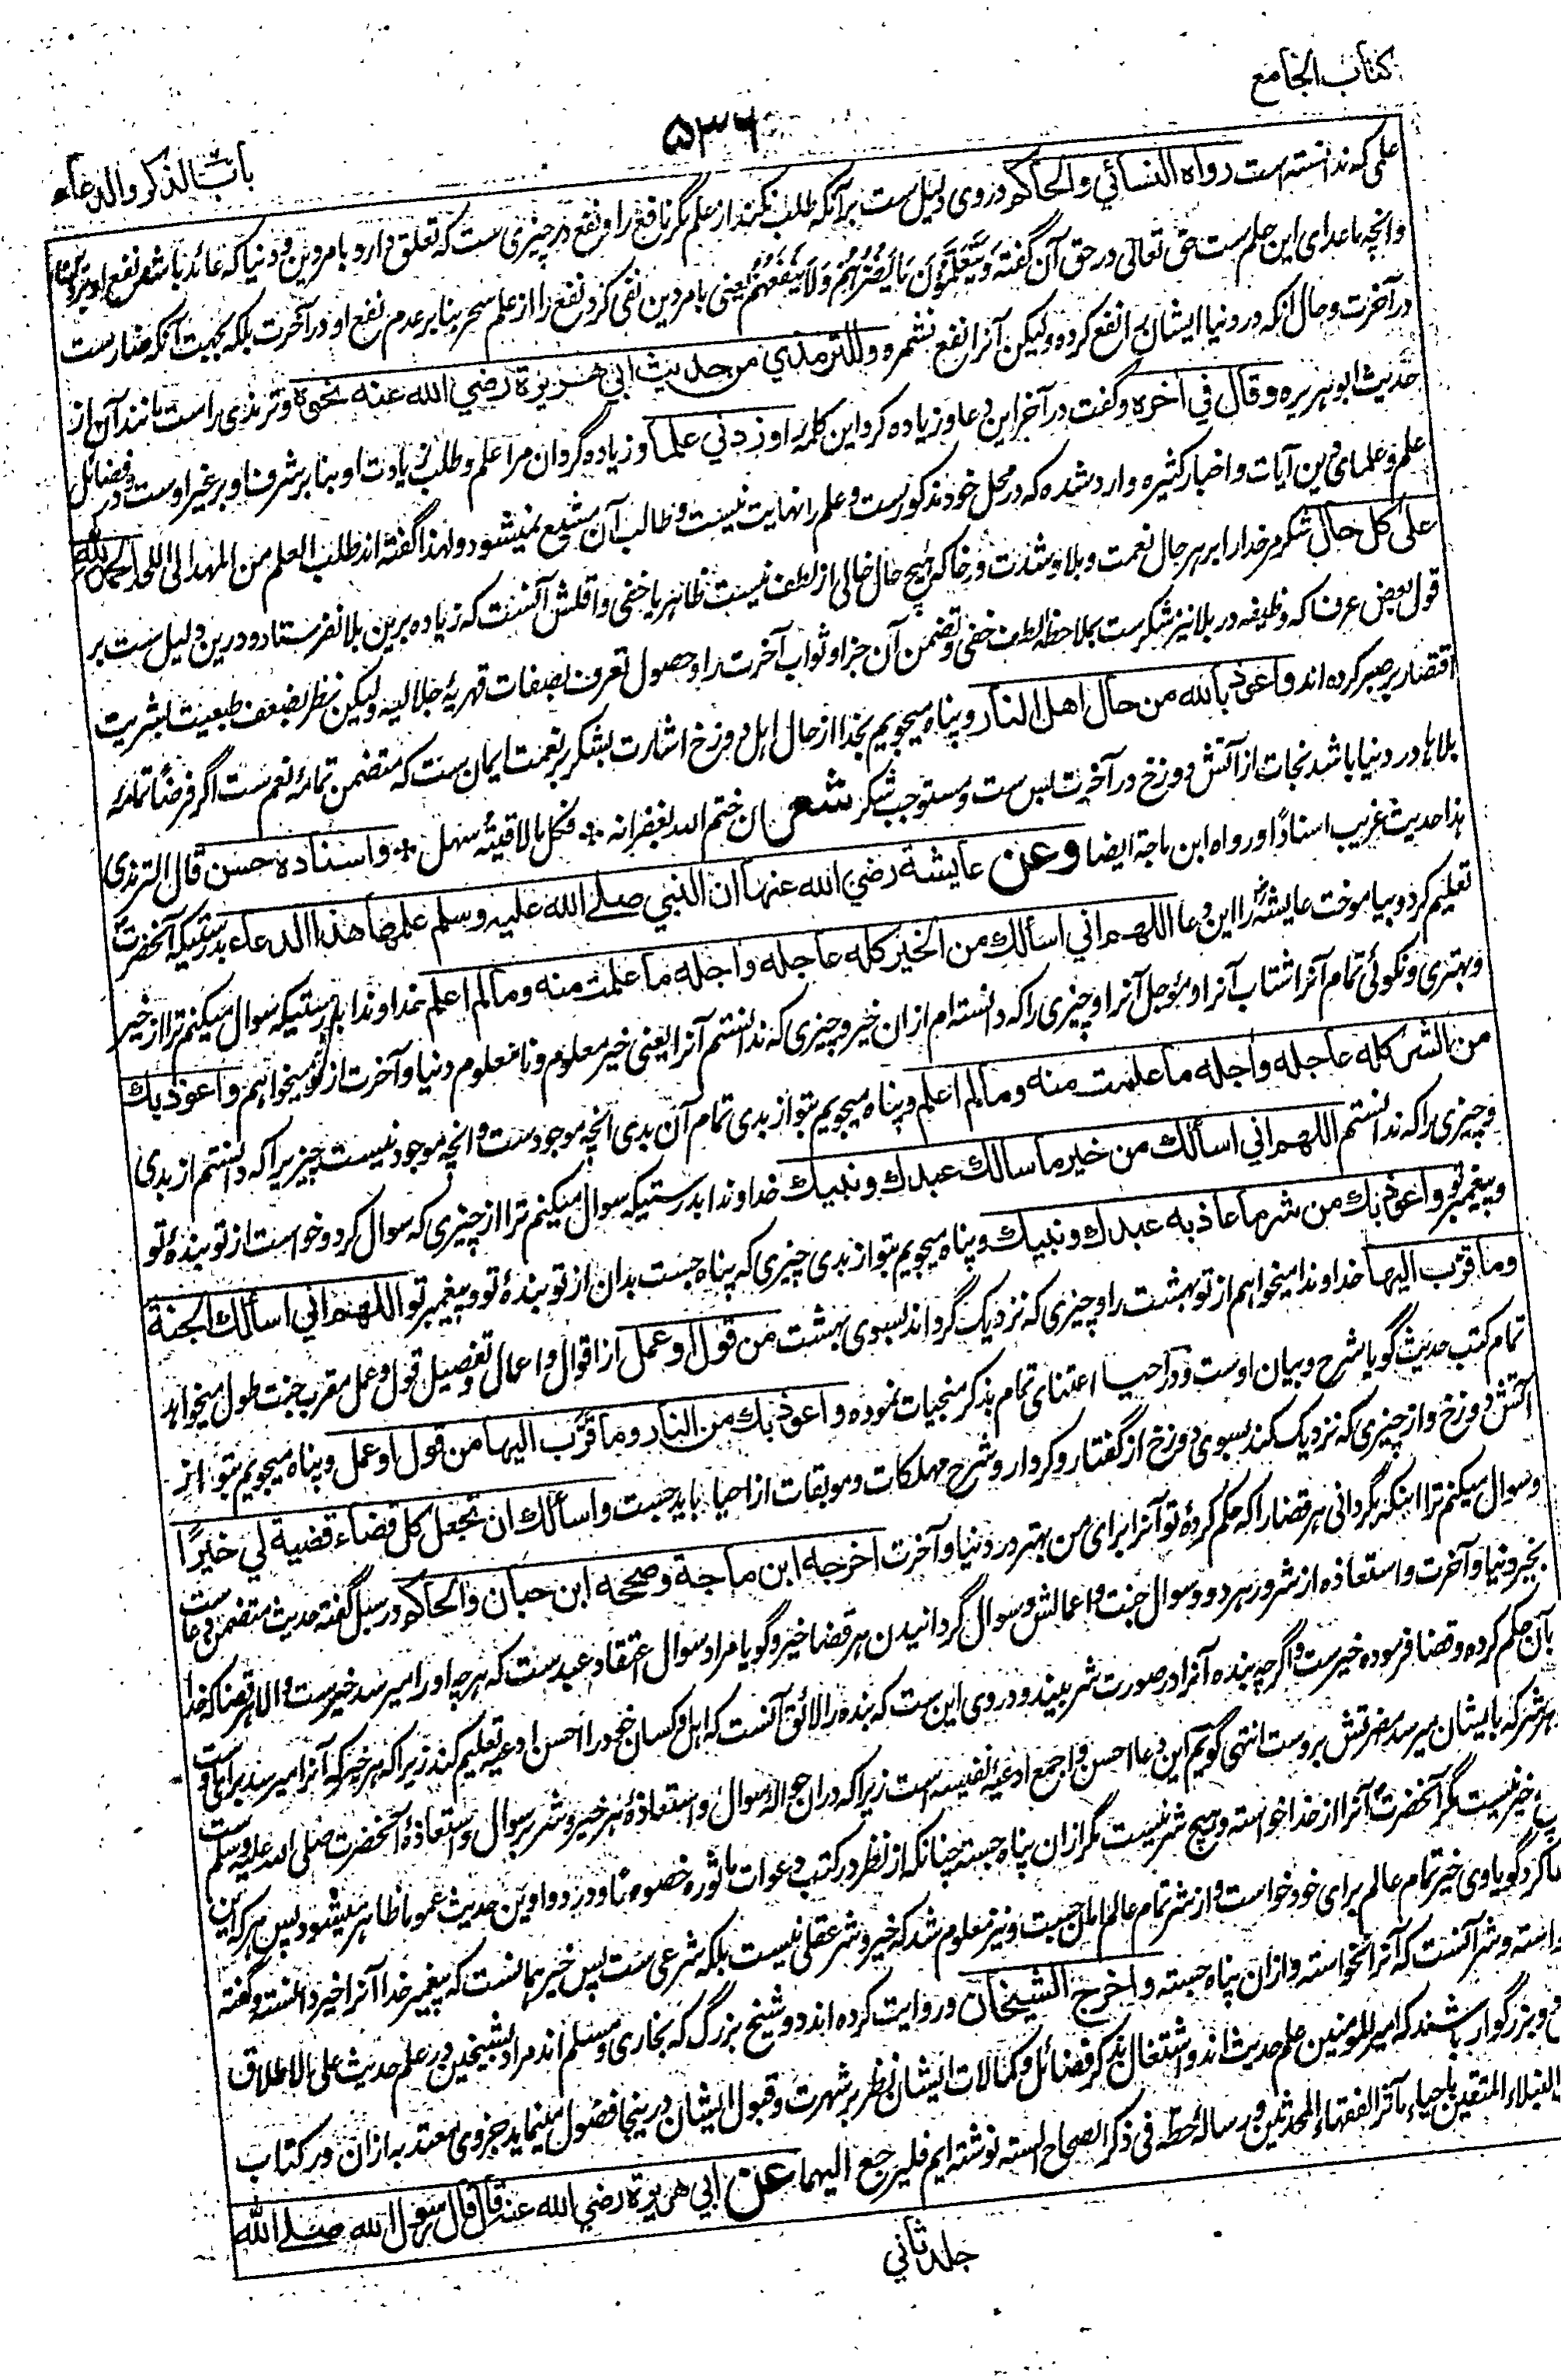 كتاب الجامع
۵۳۶
باب الذكر والدعاء
علمی که ندانسته است رواه النسائي والحاكم و در وی دلیل ست برآنکه طلب نکند از علم مگر نافع را و نفع در چیزی ست که تعلق دارد بامر دین و دنیا که عائد باشد نفع او
وانچه ماعدای این علم ست حق تعالی در حق آن گفته وَيَتَعَلَّمُونَ مَا يَضُرُّهُمْ وَلَا يَنْفَعُهُمْ یعنی بامر دین نفی کرد نفع را از علم سحر بنا بر عدم نفع او در آخرت بلکه بجهت آنکه ضار ست
در آخرت و حال آنکه در دنیا ایشان را نفع کرده ولیکن آنرا نفع نشمره وللترمذي من حديث ابي هريرة رضي الله عنه نحوه و ترمذی راست مانند آن از
حدیث ابو هریره وقال في آخره و گفت در آخر این دعا و زیاده کرد این کلمه را وزدني علما و زیاده گردان مرا علم و طلب زیادت او بنا بر شرف او بر غیر اوست و در فضائل
علم و علمای دین آیات و اخبار کثیره وارد شده که در محل خود مذکورست و علم را نهایت نیست و طالب آن مشبع نمیشود و لهذا گفته اند طلب العلم من المهد الی اللحد الحمد لله
على كل حال شکر مر خدا را بر هر حال نعمت و بلا و شدت و رخا که هیچ حال خالی از لطف نیست ظاهر یا خفی و اقلش آنست که زیاده برین بلا نفرستاد و درین دلیل ست بر
قول بعض عرفا که وظیفه در بلا نیز شکرست بملاحظه لطف خفی و تضمن آن جزا و ثواب آخرت را و حصول تعرف بصفات قهریهٔ جلالیه ولیکن نظر بضعف طبعیت بشریت
اقتصار بر صبر کرده اند واعوذ بالله من حال اهل النار و پناه میجویم بخدا از حال اهل دوزخ اشارت بشکر بر نعمت ایمان ست که متضمن تمامهٔ نعم ست اگر فرضًا تمامهٔ
بلاها در دنیا باشد نجات از آتش دوزخ در آخرت بس ست و مستوجب شکر شعر ان ختم الله بغفرانه ٭ فکل ما لاقیته سهل ٭ واسناده حسن قال الترمذی
هذا حدیث غریب اسنادًا و رواه ابن ماجة ایضا وعن عايشة رضي الله عنها ان النبي صلى الله عليه وسلم علمها هذا الدعاء بدرستیکه آنحضرت
تعلیم کرد و بیاموخت عایشه را این دعا اللهم اني اسألك من الخير كله عاجله واجله ما علمت منه وما لم اعلم خداوندا بدرستیکه سوال میکنم ترا از خیر
و بهتری و نکوئی تمام آنرا شتاب آنرا و مؤجل آنرا و چیزی را که دانسته ام از ان خیر و چیزی که ندانستم آنرا یعنی خیر معلوم و نا معلوم دنیا و آخرت از تو میخواهم واعوذ بك
من الشر كله عاجله واجله ما علمت منه وما لم اعلم و پناه میجویم بتو از بدی تمام آن بدی انچه موجودست و انچه موجود نیست چیزیرا که دانستم از بدی
و چیزی را که ندانستم اللهم اني اسألك من خير ما سالك عبدك ونبيك خداوندا بدرستیکه سوال میکنم ترا از چیزی که سوال کرد و خواست از تو بندهٔ تو
و پیغمبر تو واعوذ بك من شر ما عاذ به عبدك ونبيك و پناه میجویم بتو از بدی چیزی که پناه جست بدان از تو بندهٔ تو و پیغمبر تو اللهم اني اسألك الجنة
وما قرب اليها خداوندا میخواهم از تو بهشت را و چیزی که نزدیک گرداند بسوی بهشت من قول او عمل از اقوال و اعمال و تفصیل قول و عمل مقرب جنت طول میخواهد
تمام کتب حدیث گویا شرح و بیان اوست و در احیا اعتنای تمام بذکر منجیات نموده واعوذ بك من النار وما قرب اليها من قول او عمل و پناه میجویم بتو از
آتش دوزخ و از چیزی که نزدیک کند بسوی دوزخ از گفتار و کردار و شرح مهلکات و موبقات از احیا باید جست واسألك ان تجعل كل قضاء قضيته لي خيرًا
و سوال میکنم ترا اینکه بگردانی هر قضا را که حکم کردهٔ تو آنرا برای من بهتر در دنیا و آخرت اخرجه ابن ماجة وصححه ابن حبان والحاكم در سبل گفته حدیث متضمن دعاست
بخیر دنیا و آخرت و استعاذه از شرور هر دو و سوال جنت و اعمالش و سوال گردانیدن هر قضا خیر و گویا مراد سوال اعتقاد عبد ست که هر چه او را میرسد خیرست والا هر قضا که خدا
بآن حکم کرده و قضا فرموده خیرست و اگرچه بنده آنرا در صورت شر بیند و در وی این ست که بنده را لائق آنست که اهل و کسان خود را احسن ادعیه تعلیم کند زیرا که هر خیر که آنرا میرسد برای اوست
و هر شر که بایشان میرسد مضرتش بروست انتهی گویم این دعا احسن و اجمع ادعیهٔ نفیسه است زیرا که دران حوالهٔ سوال و استعاذهٔ هر خیر و شر بر سوال و استعاذهٔ آنحضرت صلی الله علیه وسلم ست
خیر نیست مگر آنحضرت آنرا از خدا خواسته و هیچ شر نیست مگر از ان پناه جسته چنانکه از نظر در کتب دعوات ماثوره خصوصا و در دواوین حدیث عموما ظاهر میشود پس هر که این
کرد گویا وی خیر تمام عالم برای خود خواست و از شر تمام عالم امان جست و نیز معلوم شد که خیر و شر عقلی نیست بلکه شرعی ست پس خیر همانست که پیغمبر خدا آنرا خیر دانسته و گفته
و شر آنست که آنرا نخواسته و از ان پناه جسته واخرج الشيخان و روایت کرده اند دو شیخ بزرگ که بخاری و مسلم اند مراد بشیخین در علم حدیث علی الاطلاق
دو بزرگوار باشند که امیر المومنین علم حدیث اند و اشتغال بذکر فضائل و کمالات ایشان نظر بر شهرت و قبول ایشان درینجا فضول مینماید جزوی معتد به از ان در کتاب
النبلاء المتقین باحیاء مآثر الفقهاء المحدثین و رساله حطه فی ذکر الصحاح السته نوشته ایم فليرجع اليهما عن ابي هريرة رضي الله عنه قال قال رسول الله صلى الله
جلد ثاني